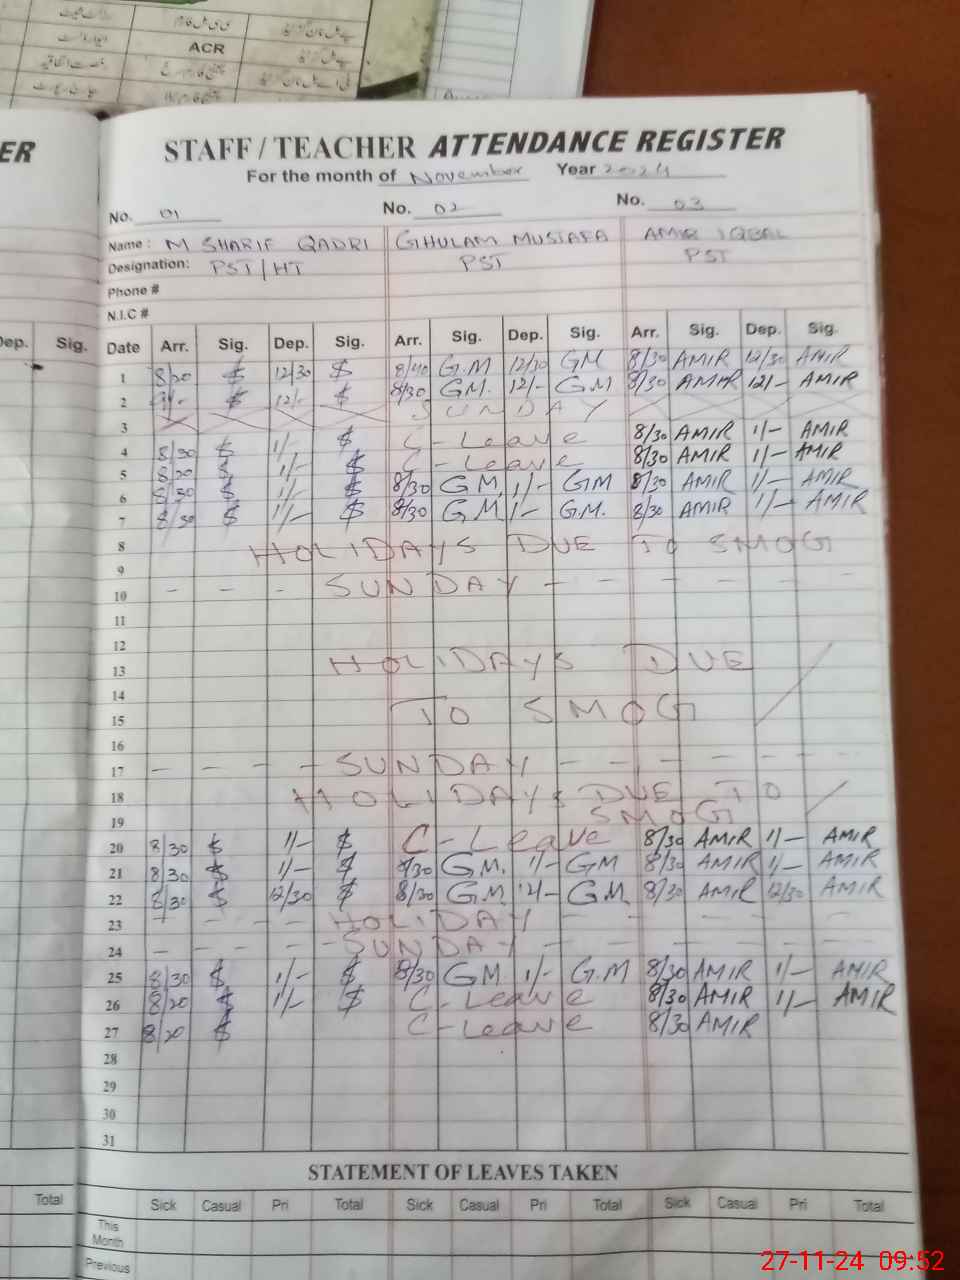 ACR
ER
STAFF / TEACHER ATTENDANCE REGISTER
For the month of November Year 2024
No. 01 No. 02 No. 03
Name : M SHARIF QADRI GHULAM MUSTAFA AMIR IQBAL
Designation: PST/HT PST PST
Phone #
N.I.C #
Dep. Sig. Date Arr. Sig. Dep. Sig. Arr. Sig. Dep. Sig. Arr. Sig. Dep. Sig.
1 8/20 $ 12/30 $ 8/40 G.M 12/30 GM 8/30 AMIR 12/30 AMIR
2 $ 12/- $ 8/30 GM. 12/- G.M 8/30 AMIR 12/- AMIR
3 SUNDAY
4 8/30 $ 1/- $ C-Leave 8/30 AMIR 1/- AMIR
5 8/20 $ 1/- $ C-Leave 8/30 AMIR 1/- AMIR
6 8/30 $ 1/- $ 8/30 GM. 1/- GM 8/30 AMIR 1/- AMIR
7 8/30 $ 1/- $ 8/30 G.M 1/- G.M. 8/30 AMIR 1/- AMIR
8 HOLIDAYS DUE TO SMOG
9
10 - - - SUNDAY - - - - - -
11
12
13 HOLIDAYS DUE
14
15 TO SMOG
16
17 - - - - SUNDAY - - - - - -
18 HOLIDAYS DUE TO
19 SMOG
20 8/30 $ 1/- $ C-Leave 8/30 AMIR 1/- AMIR
21 8/30 $ 1/- $ 8/30 GM. 1/- GM 8/30 AMIR 1/- AMIR
22 8/30 $ 12/30 $ 8/30 G.M 12/- G.M. 8/30 AMIR 12/30 AMIR
23 - - - - HOLIDAY - - - - -
24 - - - - SUNDAY - - - - - -
25 8/30 $ 1/- $ 8/30 GM 1/- G.M 8/30 AMIR 1/- AMIR
26 8/20 $ 1/- $ C-Leave 8/30 AMIR 1/- AMIR
27 8/20 $ C-Leave 8/30 AMIR
28
29
30
31
STATEMENT OF LEAVES TAKEN
Total Sick Casual Pri Total Sick Casual Pri Total Sick Casual Pri Total
This
Month
Previous
27-11-24 09:52